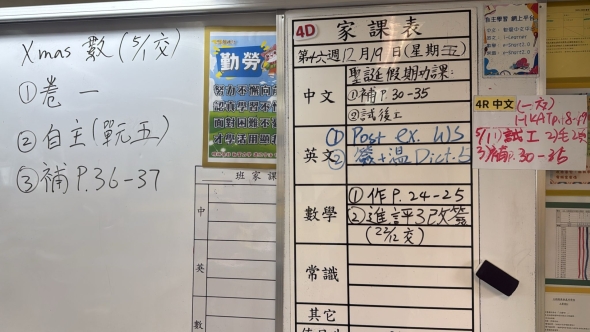 Xmas 數 (5/1交)
①卷 一
②自主(單元五)
③補 P.36-37
勤勞
努力不懈向
班 家 課
中
英
數
4D 家 課 表
第十六週 12 月 19 日 (星期五)
中文
聖誕假期功課:
①補P.30-35
②試後工
英文
① Post ex. WS
② 簽+溫 Dict.5
數學
① 作 P.24-25
② 進評3改簽
(22/12 交)
常識
其它
自主學習 網上平台
4R 中文
5/1 1)試工
3)補P.30-35